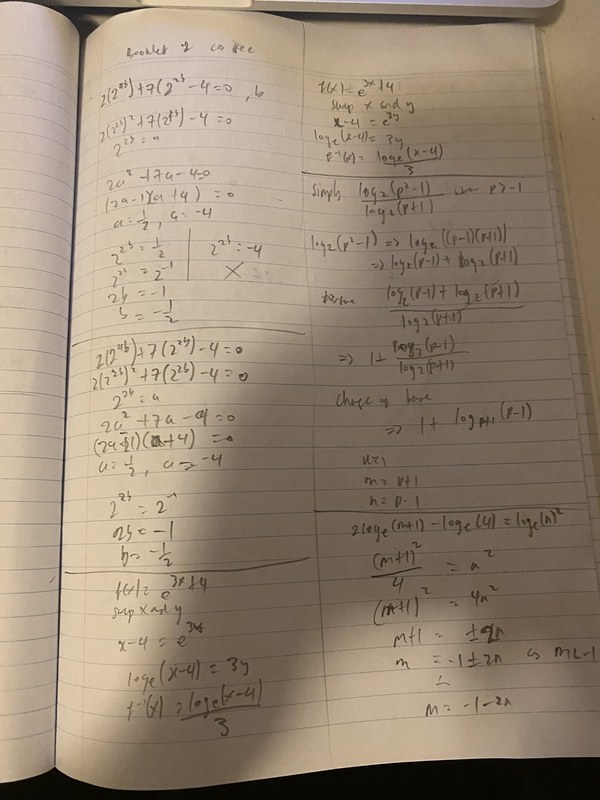 Booklet 2
2(2^{4b}) + 7(2^{2b}) - 4 = 0, b
2(2^{2b})^2 + 7(2^{2b}) - 4 = 0
2^{2b} = a
2a^2 + 7a - 4 = 0
(2a - 1)(a + 4) = 0
a = 1/2, a = -4
2^{2b} = 1/2 | 2^{2b} = -4
2^{2b} = 2^{-1} | ×
2b = -1
b = -1/2
2(2^{4b}) + 7(2^{2b}) - 4 = 0
2(2^{2b})^2 + 7(2^{2b}) - 4 = 0
2^{2b} = a
2a^2 + 7a - 4 = 0
(2a - 1)(a + 4) = 0
a = 1/2, a = -4
2^{2b} = 2^{-1}
2b = -1
b = -1/2
f(x) = e^{3x} + 4
swap x and y
x - 4 = e^{3y}
log_e(x - 4) = 3y
f^{-1}(x) = log_e(x - 4)/3
f(x) = e^{3x} + 4
swap x and y
x - 4 = e^{3y}
log_e(x - 4) = 3y
f^{-1}(x) = log_e(x - 4)/3
Simplify log_2(p^2 - 1)/log_2(p + 1) p > -1
log_2(p^2 - 1) => log_2((p - 1)(p + 1))
=> log_2(p - 1) + log_2(p + 1)
log_2(p - 1) + log_2(p + 1)/log_2(p + 1)
=> 1 + log_2(p - 1)/log_2(p + 1)
Change of base
=> 1 + log_{p+1}(p - 1)
m = p + 1
n = p - 1
2log_e(m + 1) - log_e(4) = log_e(n)^2
(m + 1)^2/4 = n^2
(m + 1)^2 = 4n^2
m + 1 = ± 2n
m = -1 ± 2n as m < -1
∴
m = -1 - 2n